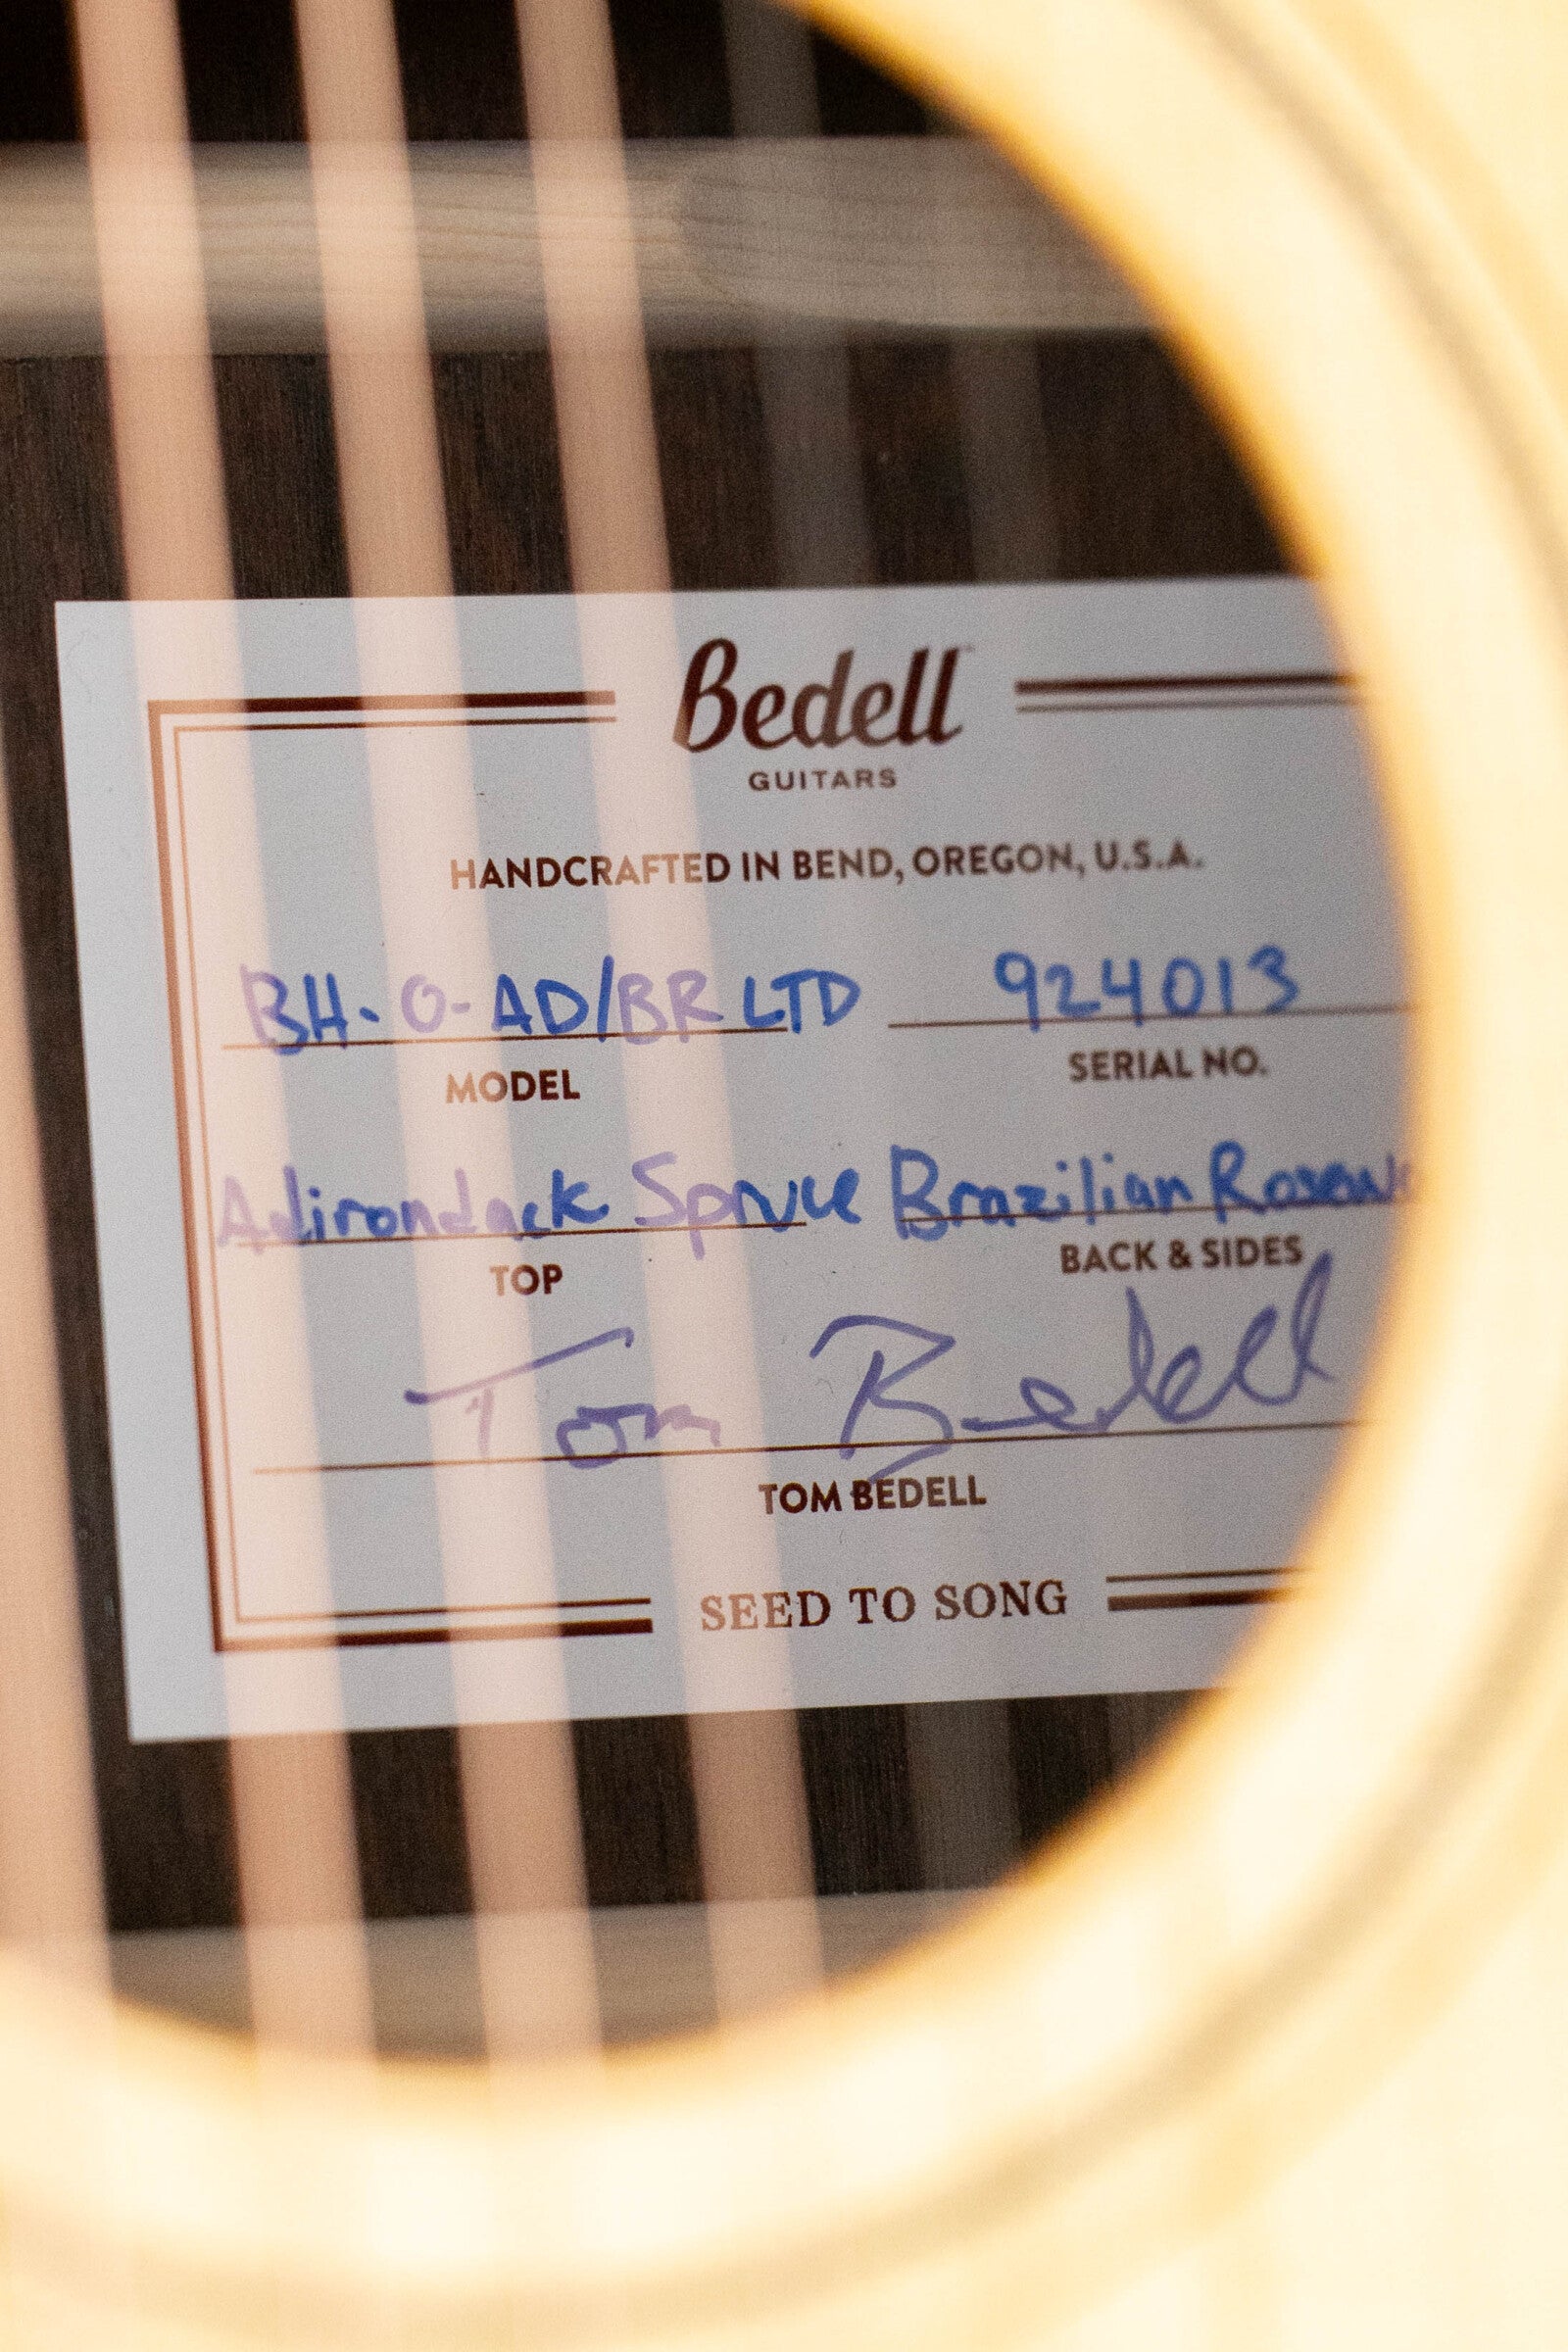 Bedell
GUITARS
HANDCRAFTED IN BEND, OREGON, U.S.A.
BH-O-AD/BR LTD 924013
MODEL SERIAL NO.
Adirondack Spruce Brazilian
TOP BACK & SIDES
Tom Bedell
TOM BEDELL
SEED TO SONG